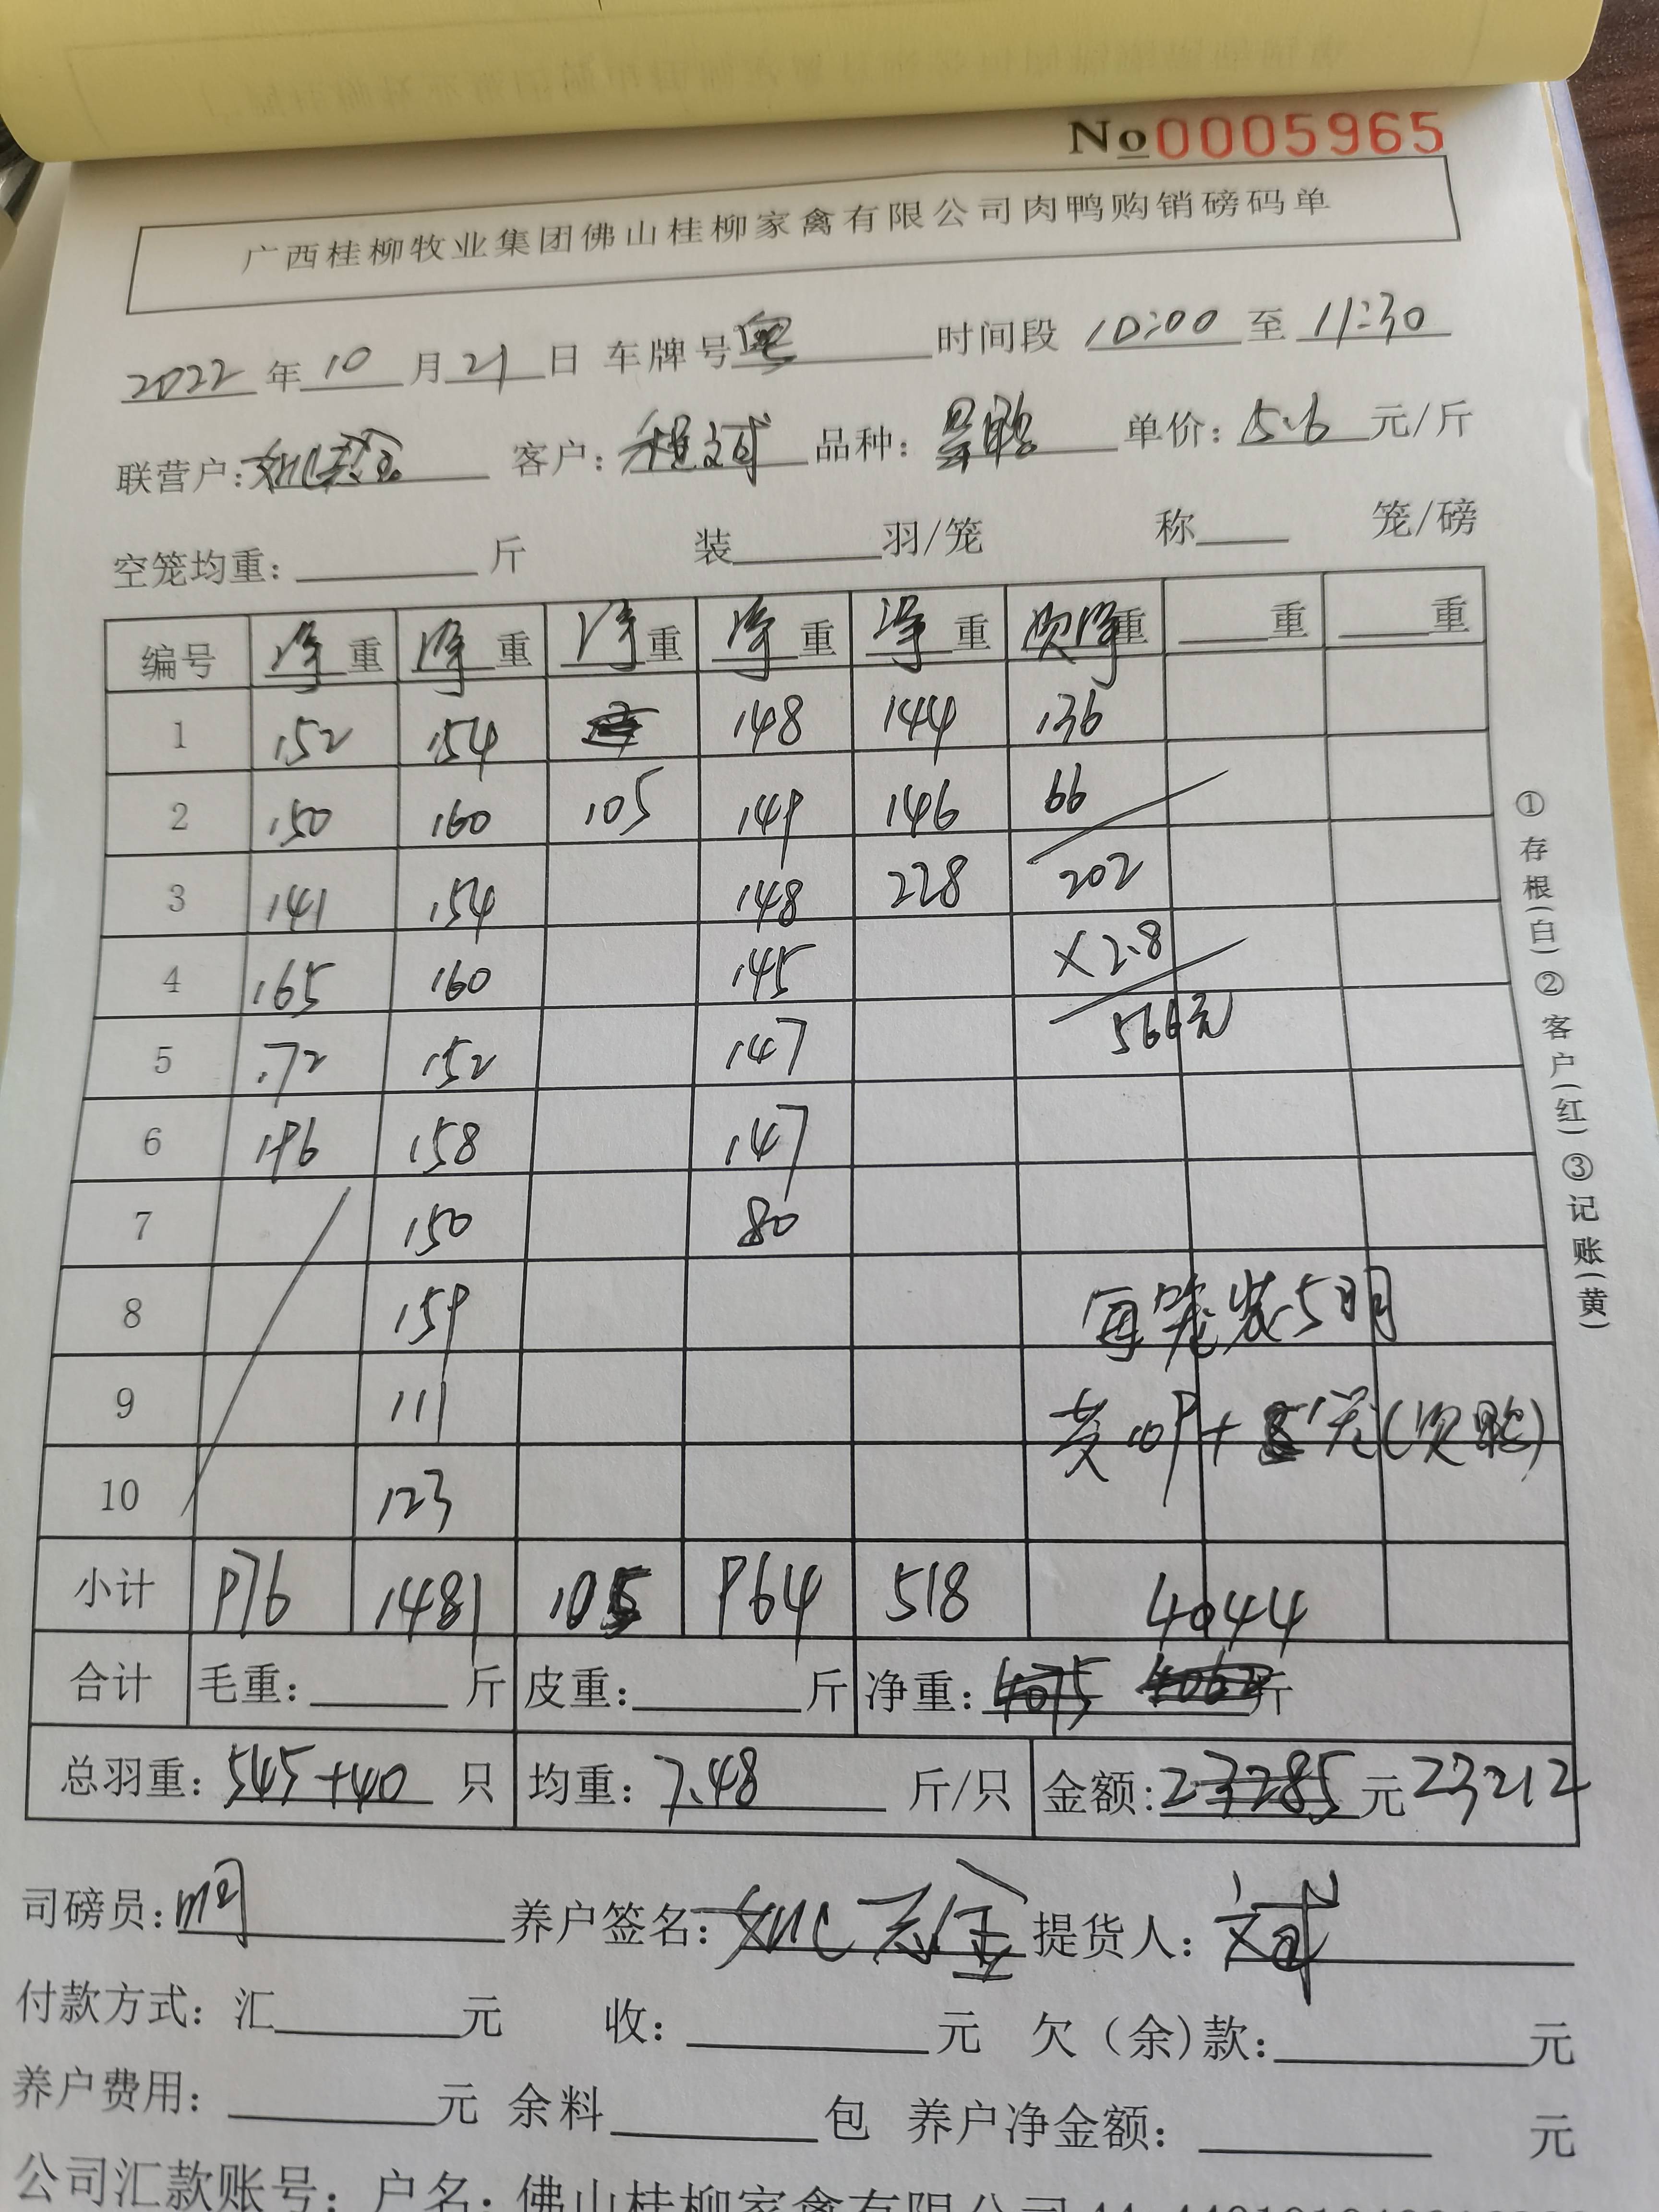 No 0005965
广西桂柳牧业集团佛山桂柳家禽有限公司肉鸭购销磅码单
2022 年 10 月 21 日 车牌号 粤 时间段 10:00 至 11:30
联营户: 客户: 程文斌 品种: 单价: 5.6 元/斤
空笼均重: 斤 装 羽/笼 称 笼/磅
编号 净重 净重 净重 净重 净重 次净重 重 重
1 152 154 148 144 136
2 150 160 105 149 146 66
3 141 154 148 228 202
4 165 160 145 ×2.8
5 172 152 147 566元
6 196 158 147
7 150 80
8 159 每笼装5只
9 111
10 123
小计 976 1481 105 964 518 4044
合计 毛重: 斤 皮重: 斤 净重: 4075 斤
总羽重: 545+40 只 均重: 7.48 斤/只 金额: 23285 元 23212
司磅员: 养户签名: 提货人: 文斌
付款方式: 汇 元 收: 元 欠(余)款: 元
养户费用: 元 余料 包 养户净金额: 元
公司汇款账号: 户名: 佛山桂柳家禽有限公司
①存根(白)②客户(红)③记账(黄)